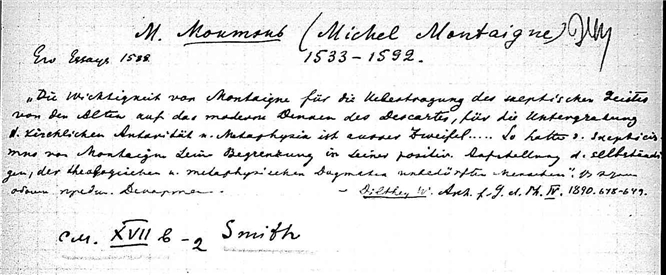 М. Монтень (Michel Montaigne)
Его Essays 1588. 1533–1592.
„Die Wichtigkeit von Montaigne für die Uebertragung des skeptischen Geistes
von den Alten auf das moderne Denken des Descartes, für die Untergrabung
d. kirchlichen Autorität u. Metaphysik ist ausser Zweifel.... So hatte d. Skepticis
mus von Montaigne seine Begrenzung in seiner positiv. Darstellung d. selbständi
gen, der theologischen u. metaphysischen Dogmen unbedürften Menschen". Въ этом
отнош. предш. Декарта. – Dilthey W. Arch. f. G. d. Ph. IV. 1890. 648–649.
См. XVII б – 2 Smith